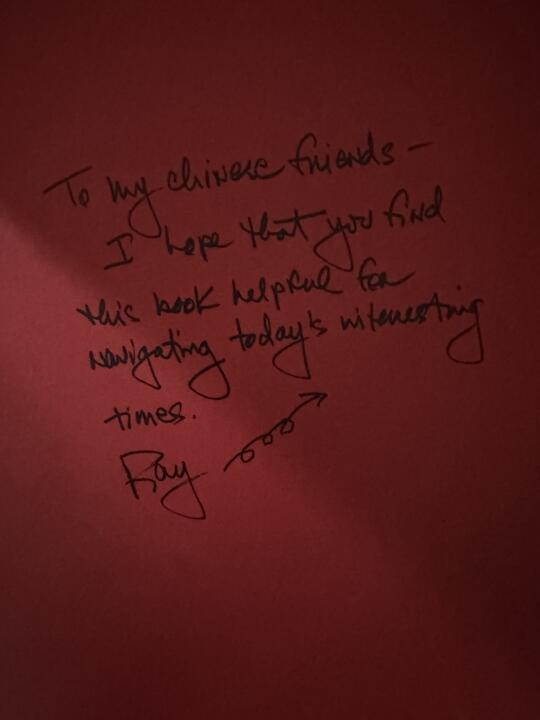 To my chinese friends -
I hope that you find
this book helpful for
navigating today's interesting
times.
Ray